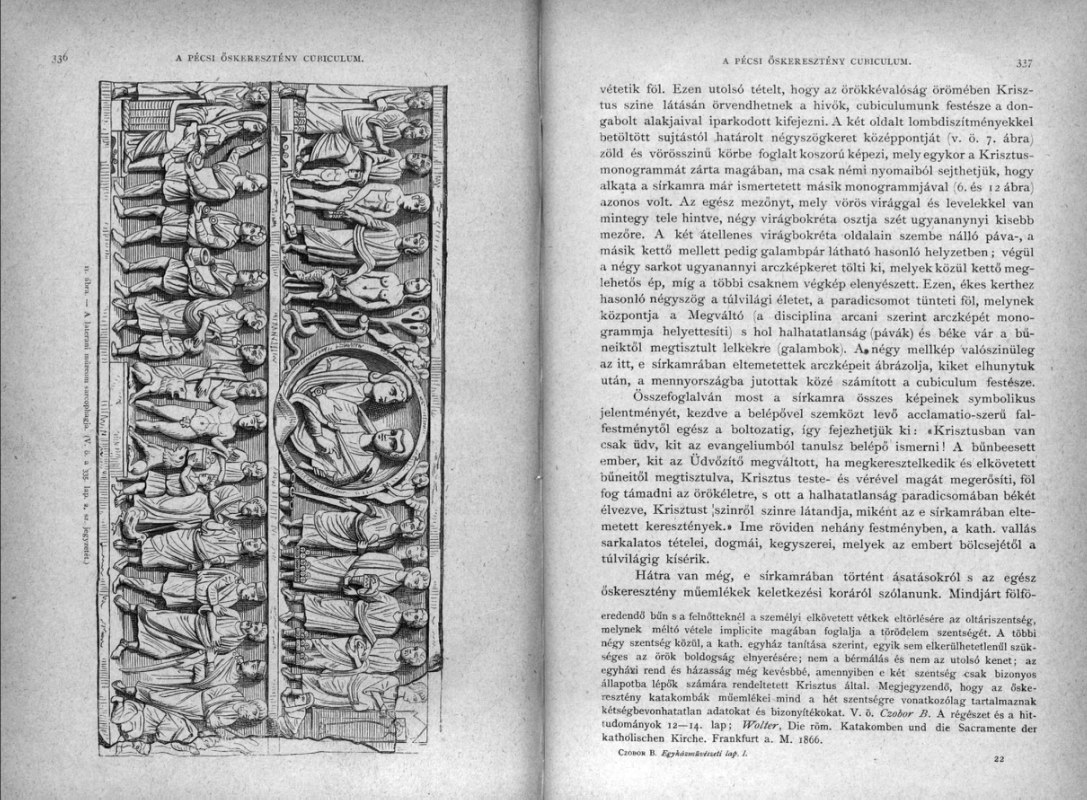 336
A PÉCSI ŐSKERESZTÉNY CUBICULUM.
11. ábra. — A laterani múzeum sarcophagja. (V. ö. a 335. lap. 2. sz. jegyzetét.)
A PÉCSI ŐSKERESZTÉNY CUBICULUM.
337
vétetik föl. Ezen utolsó tételt, hogy az örökkévalóság örömében Krisz-
tus szine látásán örvendhetnek a hivők, cubiculumunk festésze a don-
gabolt alakjaival iparkodott kifejezni. A két oldalt lombdiszítményekkel
betöltött sujtástól határolt négyszögkeret középpontját (v. ö. 7. ábra)
zöld és vörösszinű körbe foglalt koszorú képezi, mely egykor a Krisztus-
monogrammát zárta magában, ma csak némi nyomaiból sejthetjük, hogy
alkata a sírkamra már ismertetett másik monogrammjával (6. és 12 ábra)
azonos volt. Az egész mezőnyt, mely vörös virággal és levelekkel van
mintegy tele hintve, négy virágbokréta osztja szét ugyanannyi kisebb
mezőre. A két átellenes virágbokréta oldalain szembe nálló páva-, a
másik kettő mellett pedig galambpár látható hasonló helyzetben; végül
a négy sarkot ugyanannyi arczképkeret tölti ki, melyek közül kettő meg-
lehetős ép, míg a többi csaknem végkép elenyészett. Ezen, ékes kerthez
hasonló négyszög a túlvilági életet, a paradicsomot tünteti föl, melynek
központja a Megváltó (a disciplina arcani szerint arczképét mono-
grammja helyettesíti) s hol halhatatlanság (pávák) és béke vár a bű-
neiktől megtisztult lelkekre (galambok). A négy mellkép valószinüleg
az itt, e sírkamrában eltemetettek arczképeit ábrázolja, kiket elhunytuk
után, a mennyországba jutottak közé számított a cubiculum festésze.
Összefoglalván most a sírkamra összes képeinek symbolikus
jelentményét, kezdve a belépővel szemközt levő acclamatio-szerű fal-
festménytől egész a boltozatig, így fejezhetjük ki: «Krisztusban van
csak üdv, kit az evangeliumból tanulsz belépő ismerni! A bűnbeesett
ember, kit az Üdvőzítő megváltott, ha megkeresztelkedik és elkövetett
bűneitől megtisztulva, Krisztus teste- és vérével magát megerősíti, föl
fog támadni az örökéletre, s ott a halhatatlanság paradicsomában békét
élvezve, Krisztust szinről szinre látandja, miként az e sírkamrában elte-
metett keresztények.» Ime röviden nehány festményben, a kath. vallás
sarkalatos tételei, dogmái, kegyszerei, melyek az embert bölcsejétől a
túlvilágig kísérik.
Hátra van még, e sírkamrában történt ásatásokról s az egész
őskeresztény műemlékek keletkezési koráról szólanunk. Mindjárt fölfö-
eredendő bűn s a felnőtteknél a személyi elkövetett vétkek eltörlésére az oltáriszentség,
melynek méltó vétele implicite magában foglalja a törödelem szentségét. A többi
négy szentség közül, a kath. egyház tanítása szerint, egyik sem elkerülhetetlenűl szük-
séges az örök boldogság elnyerésére; nem a bérmálás és nem az utolsó kenet; az
egyházi rend és házasság még kevésbbé, amennyiben e két szentség csak bizonyos
állapotba lépők számára rendeltetett Krisztus által. Megjegyzendő, hogy az őske-
resztény katakombák műemlékei mind a hét szentségre vonatkozólag tartalmaznak
kétségbevonhatlan adatokat és bizonyítékokat. V. ö. Czobor B. A régészet és a hit-
tudományok 12—14. lap; Wolter, Die röm. Katakomben und die Sacramente der
katholischen Kirche. Frankfurt a. M. 1866.
CZOBOR B. Egyházművészeti lap. I.
22